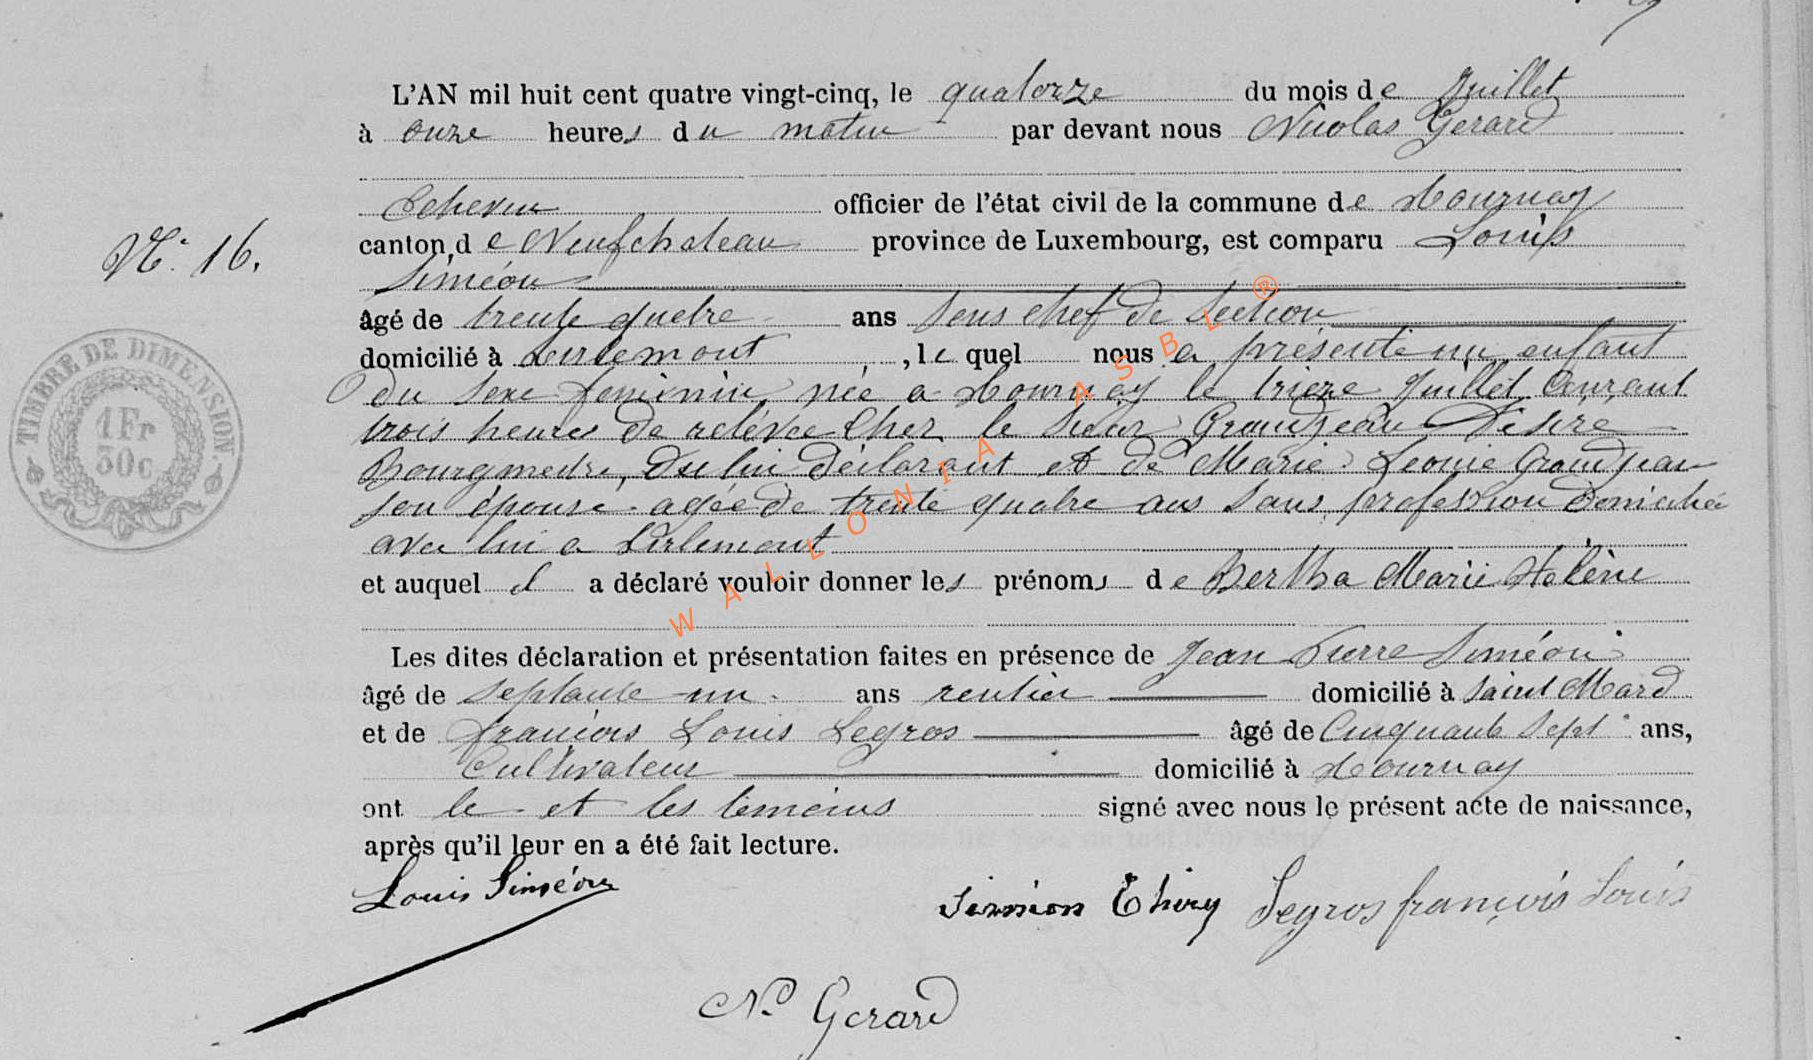 L'AN mil huit cent quatre vingt-cinq, le quatorze du mois de Juillet
à onze heures du matin par devant nous Nicolas Gerard
Echevin officier de l'état civil de la commune de Tournay
canton de Neufchateau province de Luxembourg, est comparu Louis
Siméon
âgé de trente quatre ans sous chef de Section
domicilié à Tirlemont, le quel nous a présenté un enfant
du sexe feminin née a Tournay le trieze Juillet Courant
trois heures de relévée Chez le Sieur Grandjean Désiré
Bourgmestre, du lui déclarant et de Marie Leonie Grandjean
son épouse agée de trente quatre ans sans profession domiciliée
avec lui a Tirlemont
et auquel il a déclaré vouloir donner les prénoms de Bertha Marie Hélène
Les dites déclaration et présentation faites en présence de Jean Pierre Siméon
âgé de septante un ans rentier domicilié à Saint Mard
et de François Louis Legros âgé de Cinquante Sept ans,
Cultivateur domicilié à Tournay
ont le et les témoins signé avec nous le présent acte de naissance,
après qu'il leur en a été fait lecture.
Louis Siméon
Simion Thiry Legros françois Louis
N. Gerard
N° 16.
TIMBRE DE DIMENSION
1 Fr
30c
WALLONIA ASBL ®